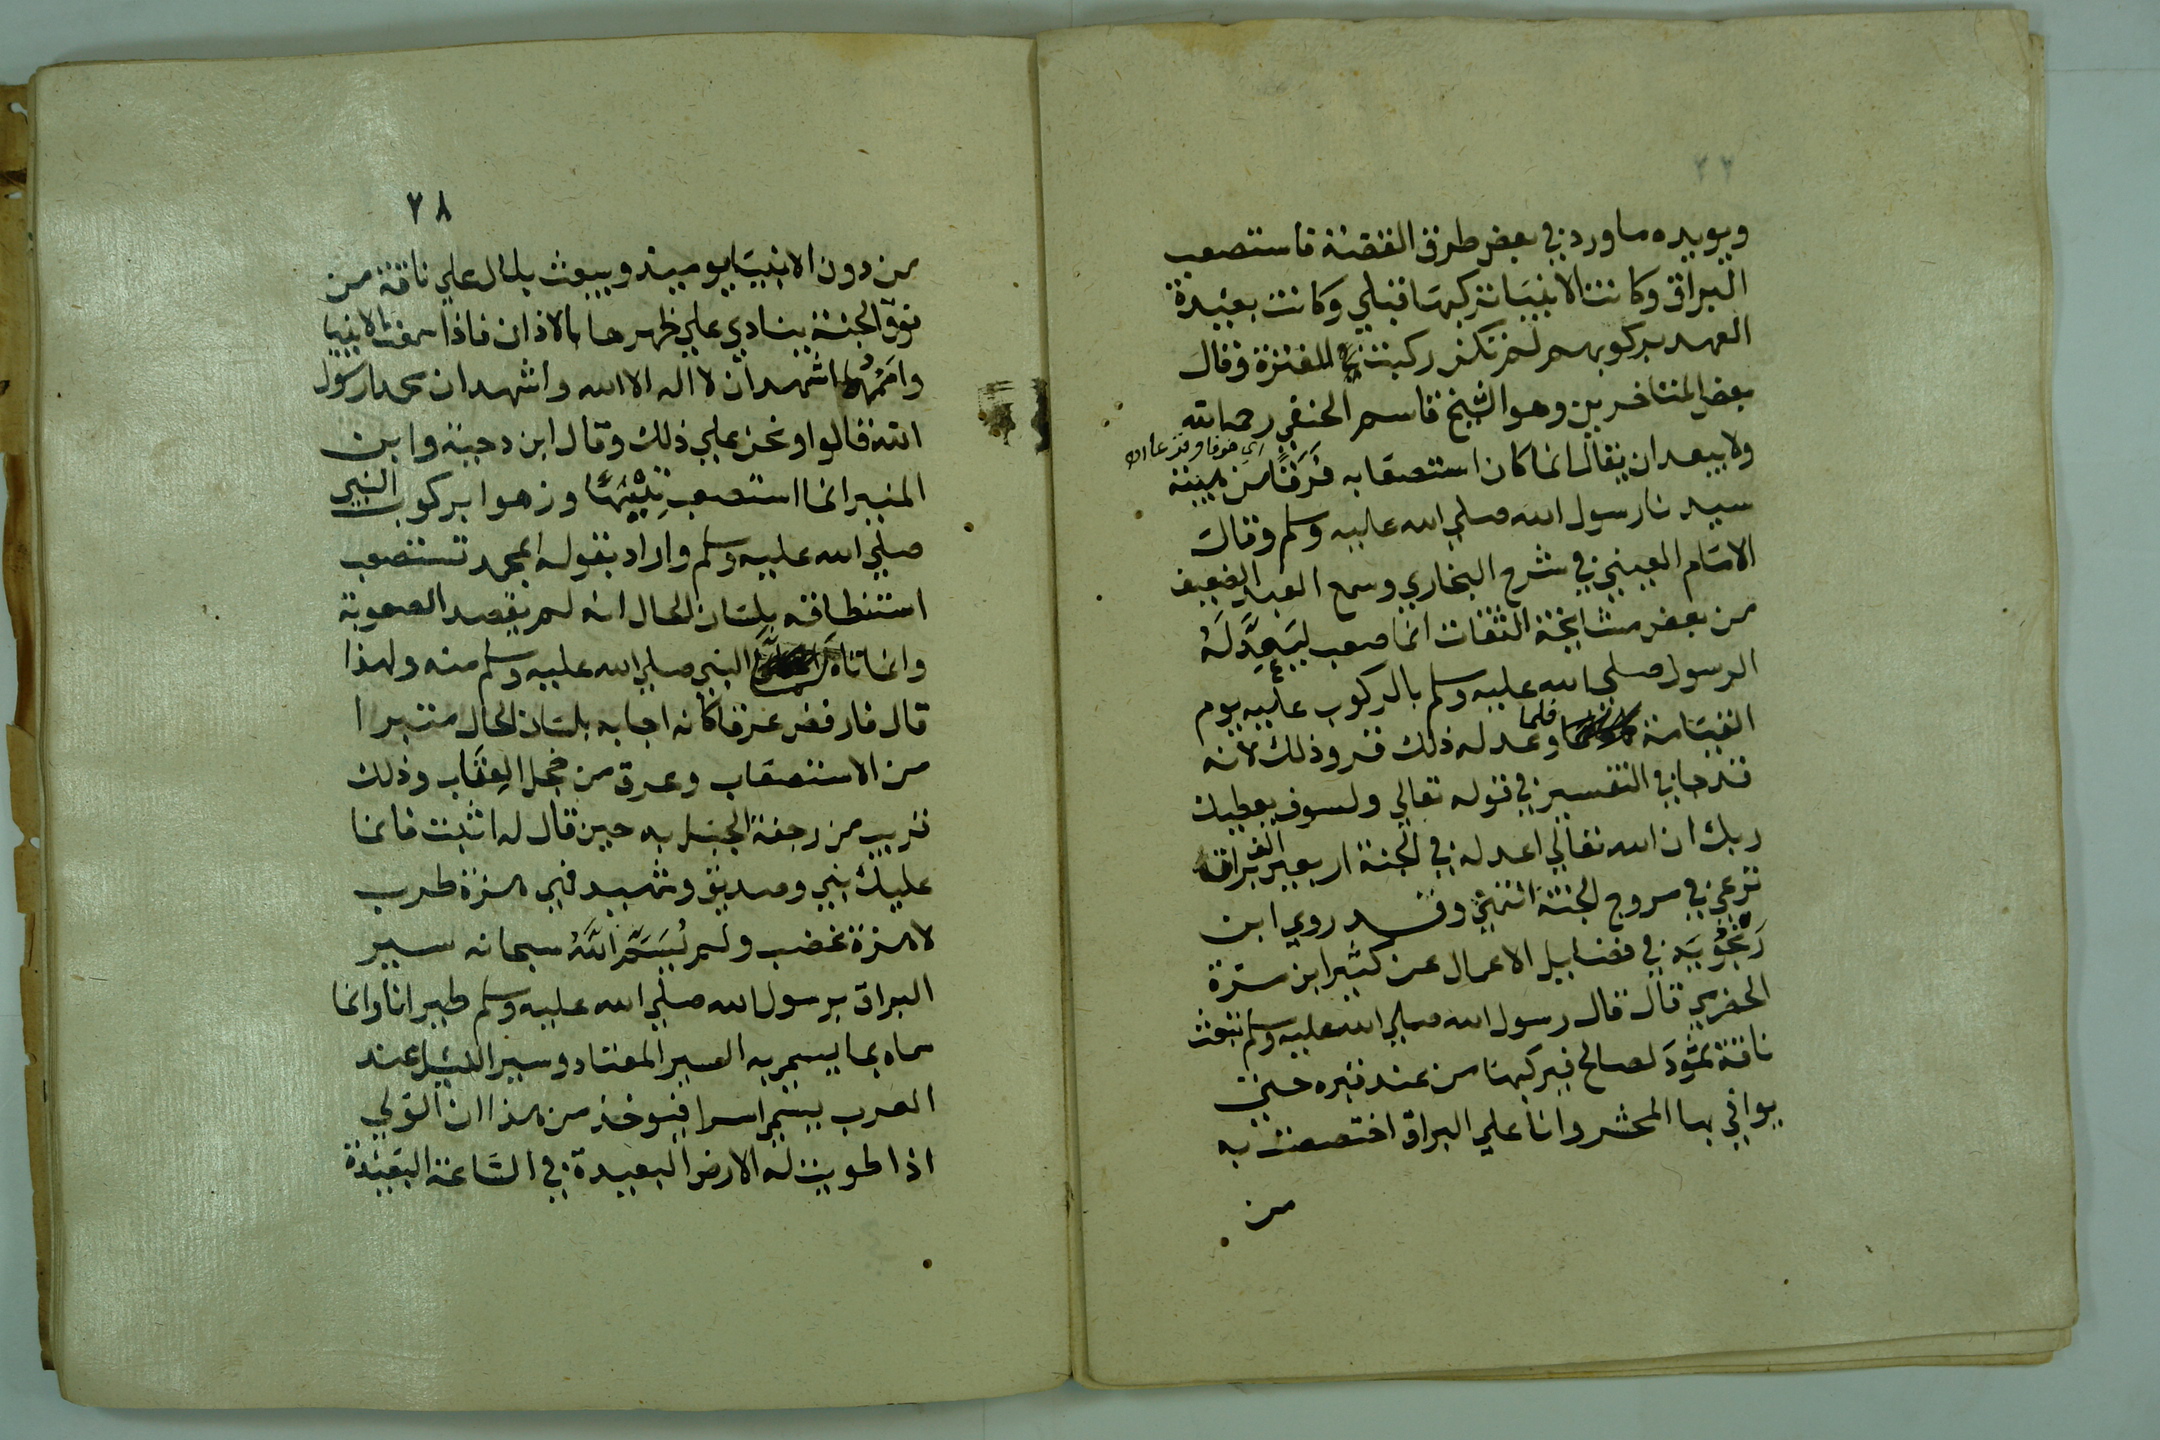 ويويده ما ورد في بعض طرق القصة فاستصعب
البراق وكانت الانبيا تركبها قبلي وكانت بعيدة
العهد بركوبهم لم تكن ركبت في الفترة وقال
بعض المتاخرين وهو الشيخ قاسم الحنفي رحمه الله
ولا يبعد ان يقال انما كان استصعابه فَرَقًا من هيبة
اي خوفا وفزعا اه
سيدنا رسول الله صلي الله عليه وسلم وقال
الامام العيني في شرح البخاري وسمع العبد الضعيف
من بعض مشايخة الثقات انما صعب ليَعِدَ لَهُ
الرسول صلي الله عليه وسلم بالركوب عليه يوم
القيامة فلما وعد له ذلك قر وذلك لانه
قد جا في التفسير في قوله تعالي ولسوف يعطيك
ربك ان الله تعالي اعد له في الجنة اربعين الف براق
ترعي في مروج الجنة انتهي وقد روي ابن
زَنْجُوْيَه في فضايل الاعمال عن كثير ابن مرة
الحضرمي قال قال رسول الله صلي الله عليه وسلم تبعث
ناقة ثمود لصالح فيركبها من عند قبره حتي
يوافي بها المحشر وانا علي البراق اختصصت به
من
٢٨
من دون الانبيا يوميذ ويبعث بلال علي ناقة من
نوق الجنة ينادي علي ظهرها بالاذان فاذا سمعت الانبيا
واممُها اشهد ان لا اله الا الله واشهد ان محمدا رسول
الله قالوا ونحن علي ذلك وقال ابن دحية وابن
المنير انما استصعب تِيْهًا وزهوا بركوب النبي
صلي الله عليه وسلم واراد بقوله ابمحمد تستصعب
استنطاقه بلسان الحال انه لم يقصد الصعوبة
وانما تاه لمكان النبي صلي الله عليه وسلم منه ولهذا
قال فارفض عرقا كانه اجابه بلسان الحال متبرا
من الاستصعاب وعرق من خجل العِتَاب وذلك
قريب من رجفة الجبل به حين قال له اثبت فانما
عليك نبي وصديق وشهيد فهي هزة طرب
لا هزة غضب ولم يُسَمِّ اللهُ سبحانه سير
البراق برسول الله صلي الله عليه وسلم طيرانا وانما
سماه بما يسمي به السير المعتاد وسير الليل عند
العرب يسمي اسرا فيوخذ من هذا ان الولي
اذا طويت له الارض البعيدة في الساعة البعيدة